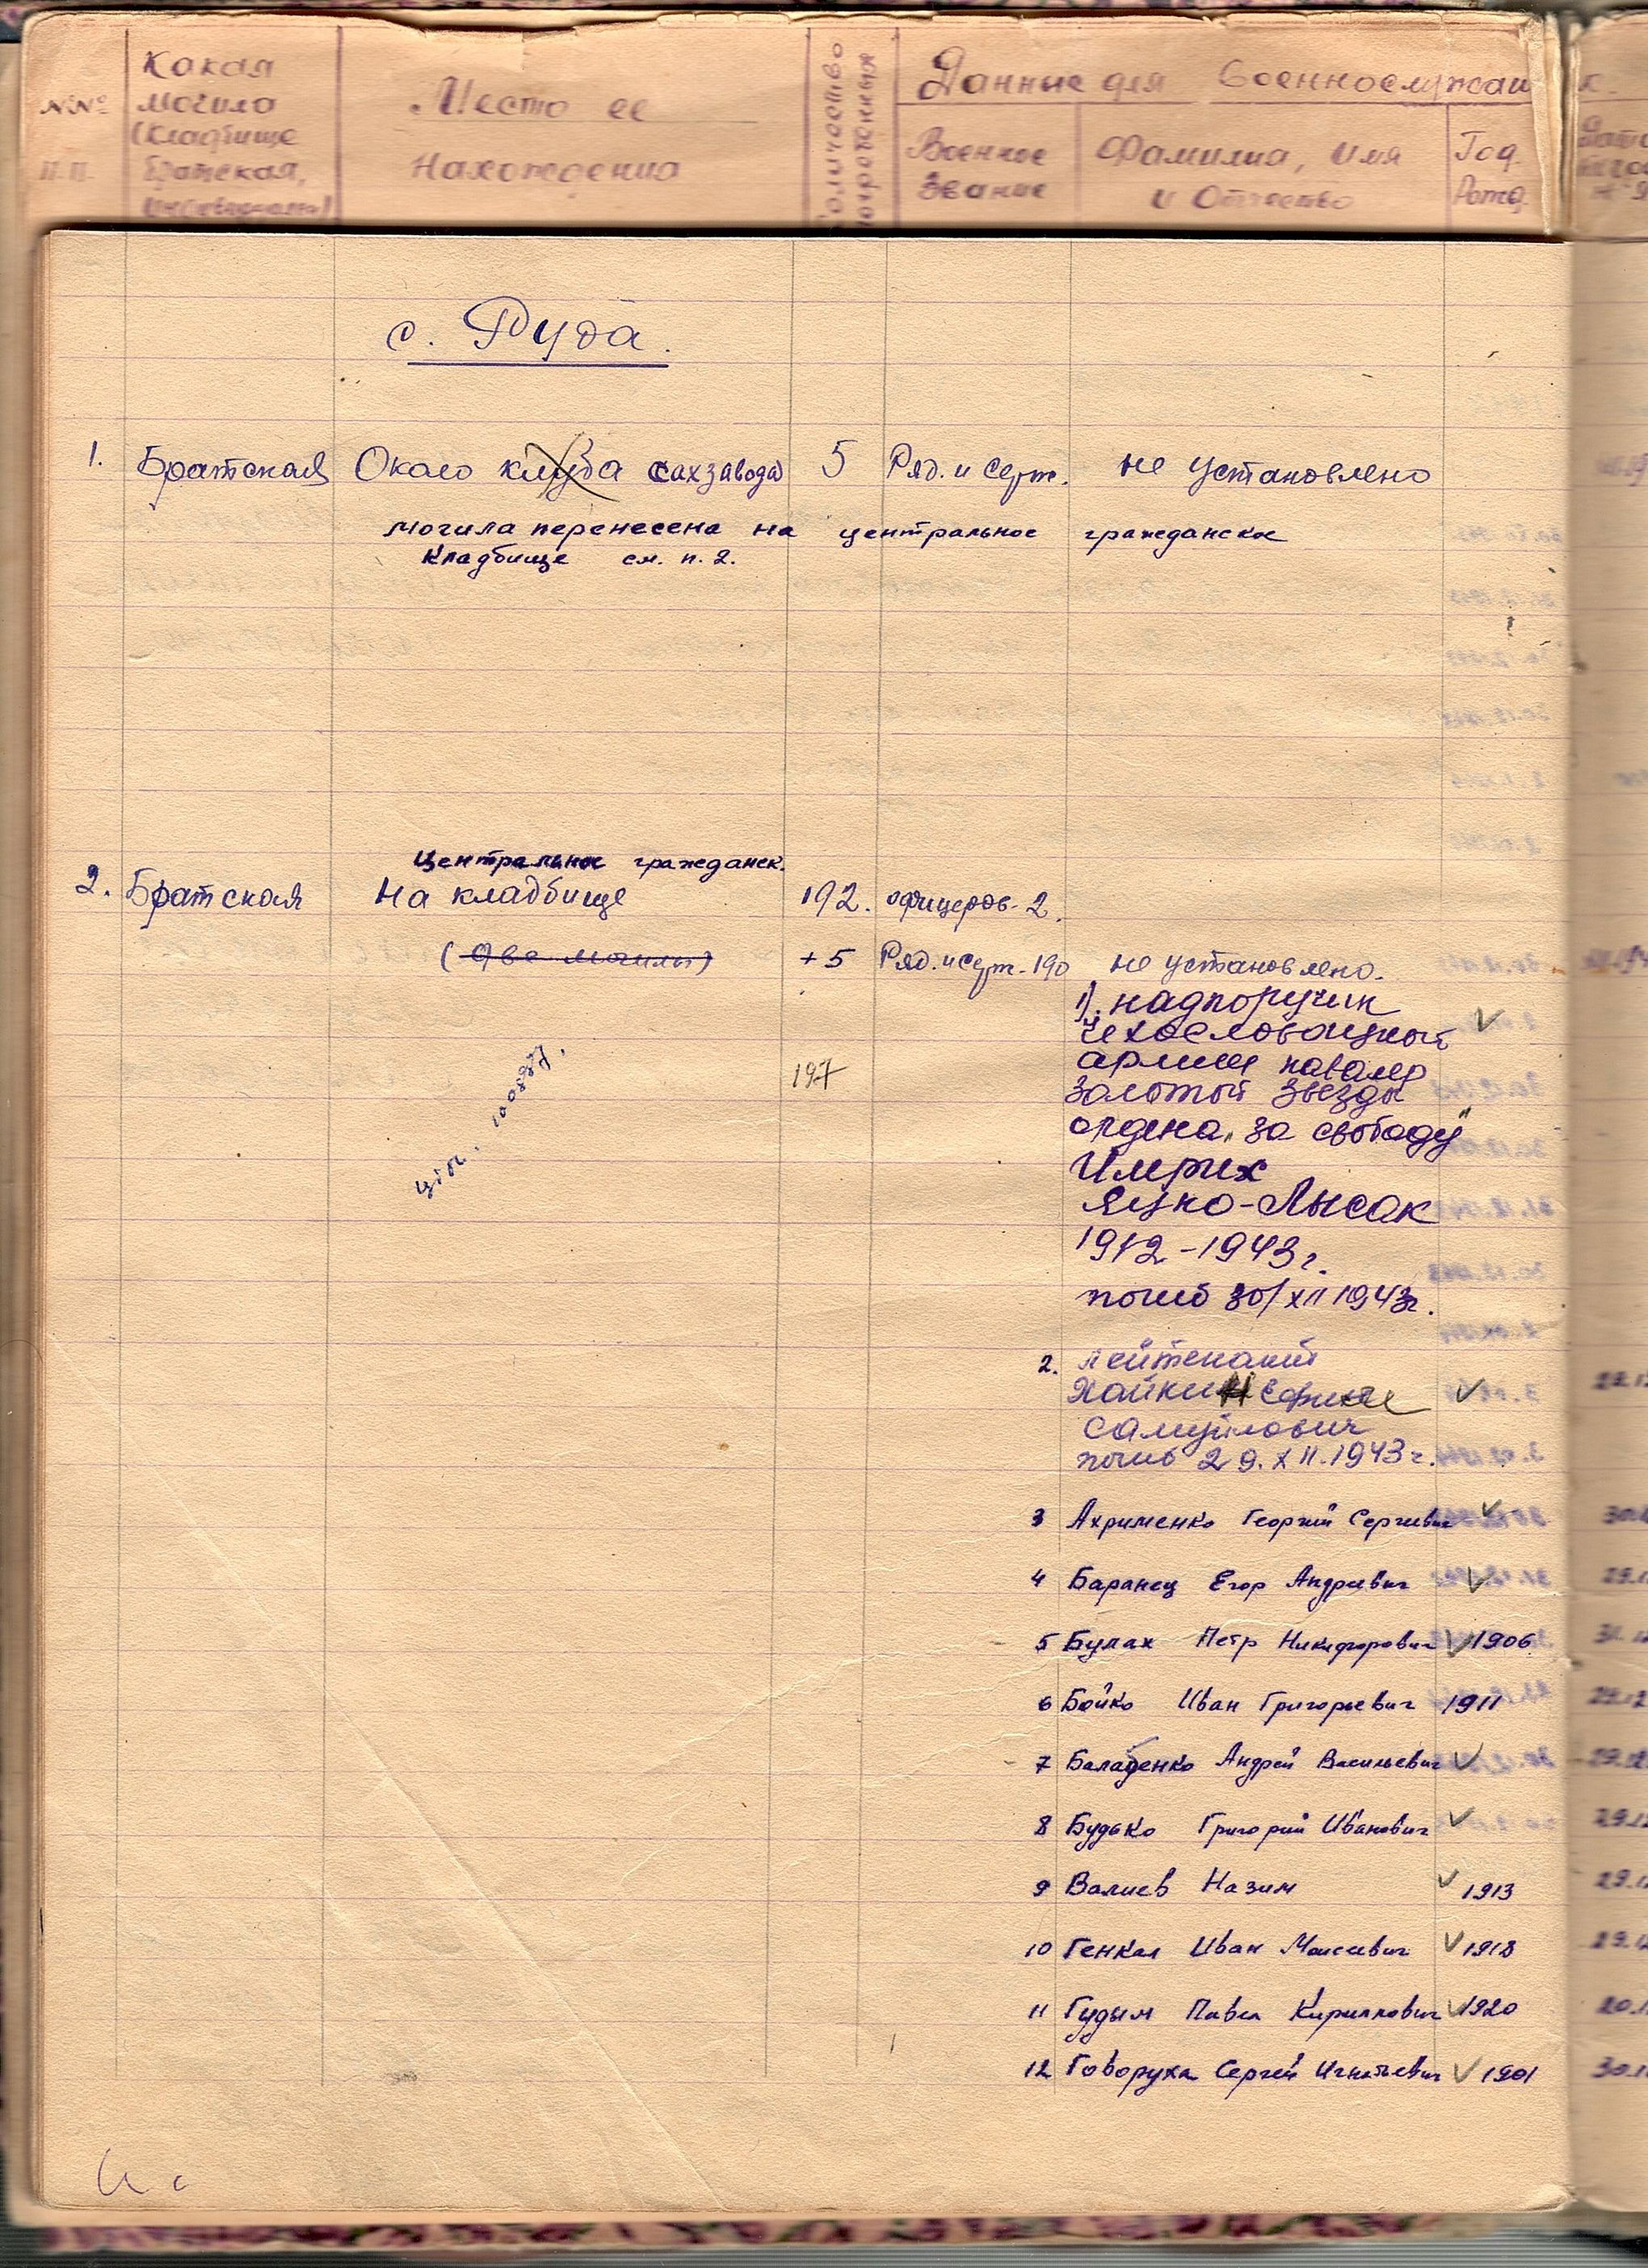 NNº
п.п.
Какая
могила
(кладбище
братская,
Место ее
нахождения
Количество
похороненных
Данные для военнослужащ
Военное
Звание
Фамилия, имя
и Отчество
Год
Рожд.
с. Руда.
1. Братская Около клуба сахзавода 5 Ряд. и Серж. не установлено
могила перенесена на центральное гражданское
кладбище см. п. 2.
Центральное гражданск.
2. Братская На кладбище 192. офицеров-2.
(две могилы) +5 Ряд. и Серж.-190 не установлено.
197
1). надпоручик
чехословацкой
армии кавалер
золотой звезды
ордена "за свободу"
Имрих
Яцко-Лысак
1912-1943г.
погиб 30/XII 1943г.
2. лейтенант
Хайкин Ефим
Самуйлович
погиб 29.XII.1943г.
3 Ахрименко Георгий Сергиевич
4 Баранец Егор Андреевич
5 Булах Петр Никифорович 1906
6 Бойко Иван Григорьевич 1911
7 Балабенко Андрей Васильевич
8 Будько Григорий Иванович
9 Валиев Назим 1913
10 Генкал Иван Моисеевич 1918
11 Гудым Павел Кириллович 1920
12 Говоруха Сергей Игнатьевич 1901